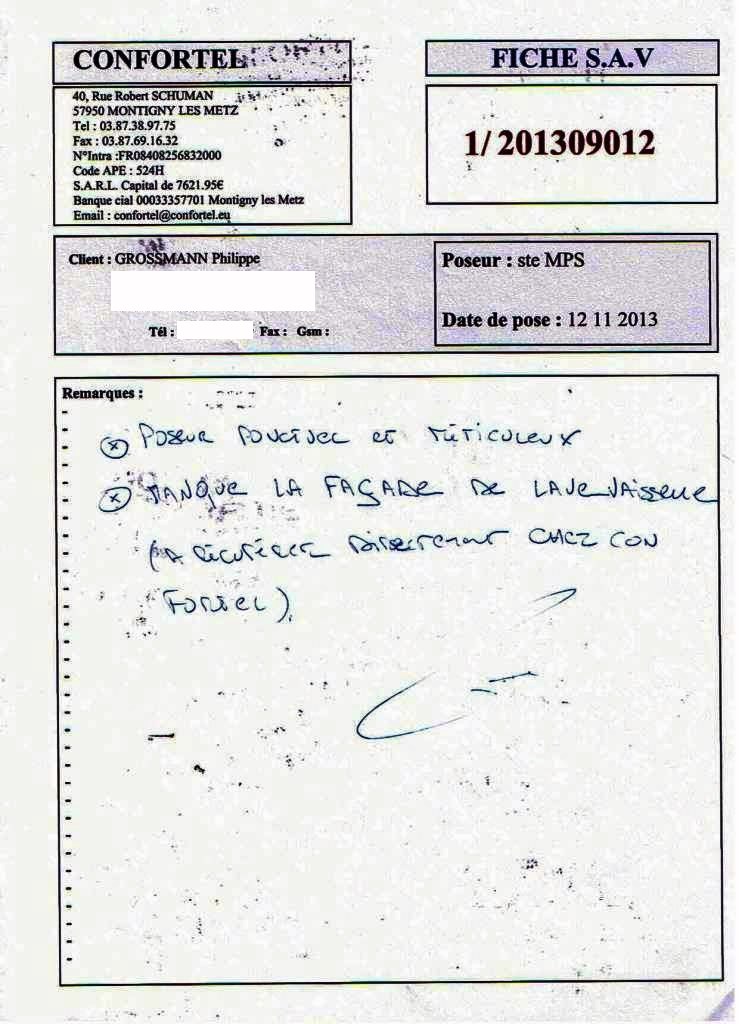 CONFORTEL
FICHE S.A.V
40, Rue Robert SCHUMAN
57950 MONTIGNY LES METZ
Tel : 03.87.38.97.75
Fax : 03.87.69.16.32
N°Intra :FR08408256832000
Code APE : 524H
S.A.R.L. Capital de 7621.95€
Banque cial 00033357701 Montigny les Metz
Email : confortel@confortel.eu
1/ 201309012
Client : GROSSMANN Philippe
Tél : Fax : Gsm :
Poseur : ste MPS
Date de pose : 12 11 2013
Remarques :
POSEUR PONCTUEL ET MÉTICULEUX
MANQUE LA FAÇADE DE LAVE VAISSELLE
(A RÉCUPÉRER DIRECTEMENT CHEZ CON
FORTEL)